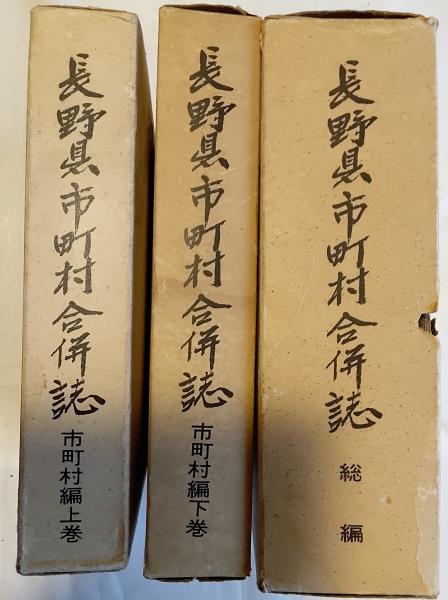 長野県市町村合併誌
市町村編上巻
長野県市町村合併誌
市町村編下巻
長野県市町村合併誌
総編